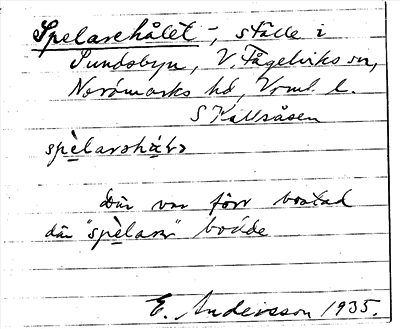 Spelarehålet -, ställe i
Sundsbyn, V. Fågelviks sn,
Nordmarks hd, Vrml. l.
S Källsåsen
Där var förr bostad
där "spèlarn" bodde
E. Andersson 1935.